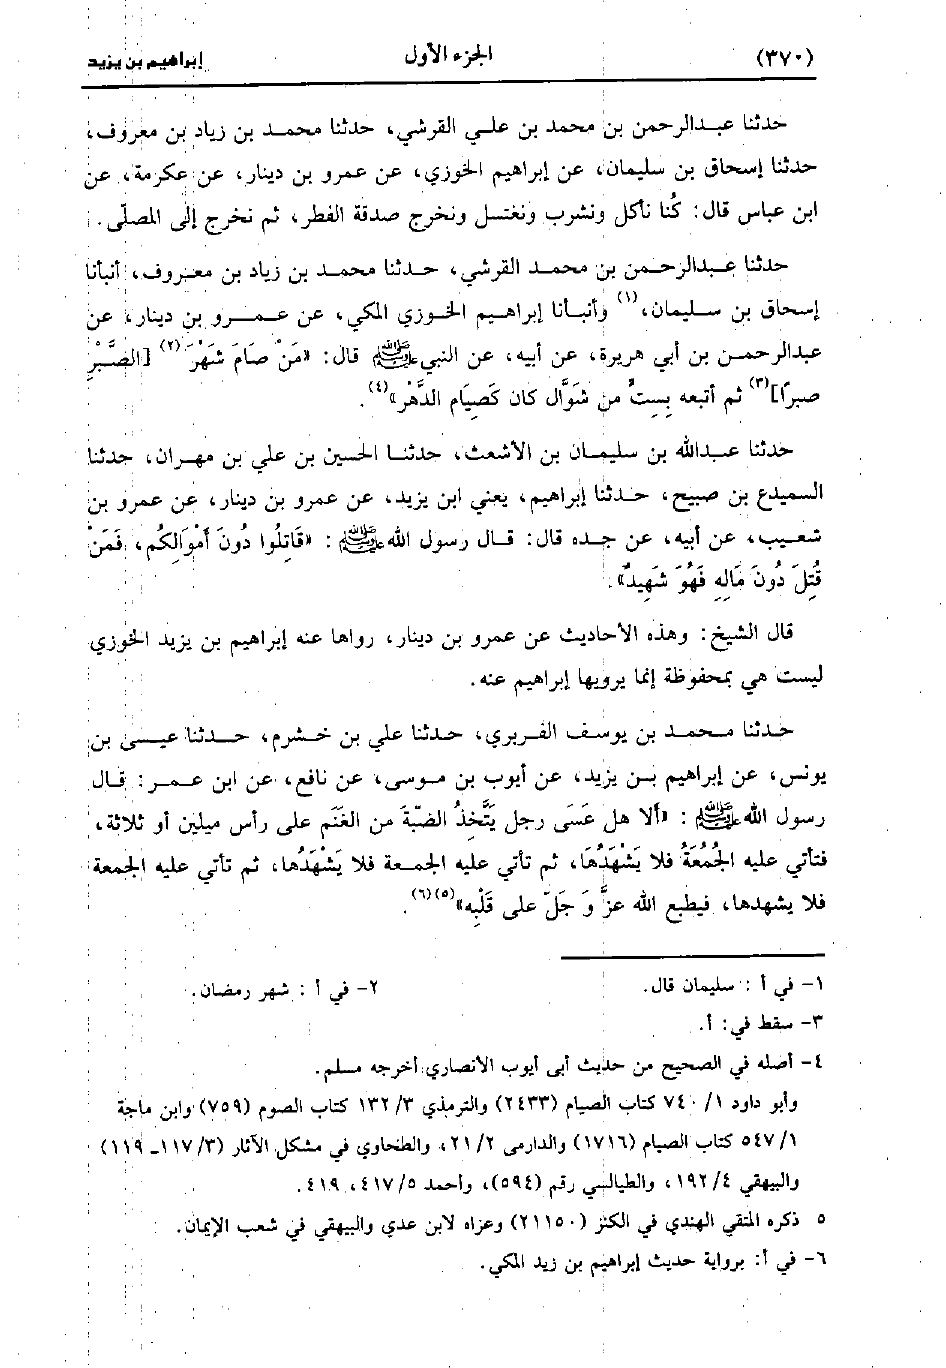 (٣٧٠) الجزء الأول إبراهيم بن يزيد
حدثنا عبدالرحمن بن محمد بن علي القرشي، حدثنا محمد بن زياد بن معروف،
حدثنا إسحاق بن سليمان، عن إبراهيم الخوزي، عن عمرو بن دينار، عن عكرمة، عن
ابن عباس قال: كُنا نأكل ونشرب ونغتسل ونخرج صدقة الفطر، ثم نخرج إلى المصلّى.
حدثنا عبدالرحمن بن محمد القرشي، حدثنا محمد بن زياد بن معروف، أنبأنا
إسحاق بن سليمان،(١) وأنبأنا إبراهيم الخوزي المكي، عن عمرو بن دينار، عن
عبدالرحمن بن أبي هريرة، عن أبيه، عن النبي ﷺ قال: «مَنْ صَامَ شَهْرَ (٢) [الصَّبْرِ
صبرًا](٣) ثم أتبعه بِستٍّ من شَوَّال كان كَصِيَام الدَّهْر»(٤).
حدثنا عبدالله بن سليمان بن الأشعث، حدثنا الحسين بن علي بن مهران، حدثنا
السميدع بن صبيح، حدثنا إبراهيم، يعني ابن يزيد، عن عمرو بن دينار، عن عمرو بن
شعيب، عن أبيه، عن جده قال: قال رسول الله ﷺ : «قَاتِلُوا دُونَ أَمْوَالِكُم، فَمَنْ
قُتِلَ دُونَ مَالِهِ فَهُوَ شَهِيدٌ».
قال الشيخ: وهذه الأحاديث عن عمرو بن دينار، رواها عنه إبراهيم بن يزيد الخوزي
ليست هي بمحفوظة إنما يرويها إبراهيم عنه.
حدثنا محمد بن يوسف الفربري، حدثنا علي بن خشرم، حدثنا عيسى بن
يونس، عن إبراهيم بن يزيد، عن أيوب بن موسى، عن نافع، عن ابن عمر: قال
رسول الله ﷺ : «ألا هل عَسَى رجل يَتَّخذُ الضبَّةَ من الغَنَم على رأس ميلين أو ثلاثة،
فتأتي عليه الجُمُعَةُ فلا يَشْهَدُهَا، ثم تأتي عليه الجمعة فلا يَشْهَدُها، ثم تأتي عليه الجمعة
فلا يشهدها، فيطبع الله عزَّ وَ جَلّ على قَلْبِه»(٥)(٦).
١- في أ : سليمان قال. ٢- في أ : شهر رمضان.
٣- سقط في: أ.
٤- أصله في الصحيح من حديث أبى أيوب الأنصاري أخرجه مسلم.
وأبو داود ١/ ٧٤٠ كتاب الصيام (٢٤٣٣) والترمذي ٣/ ١٣٢ كتاب الصوم (٧٥٩) وابن ماجة
١/ ٥٤٧ كتاب الصيام (١٧١٦) والدارمى ٢/ ٢١، والطحاوي في مشكل الآثار (٣/ ١١٧ـ ١١٩)
والبيهقي ٤/ ١٩٢، والطيالسي رقم (٥٩٤)، وأحمد ٥/ ٤١٧، ٤١٩.
٥ ذكره المتقي الهندي في الكنز (٢١١٥٠) وعزاه لابن عدي والبيهقي في شعب الإيمان.
٦- في أ: برواية حديث إبراهيم بن زيد المكي.